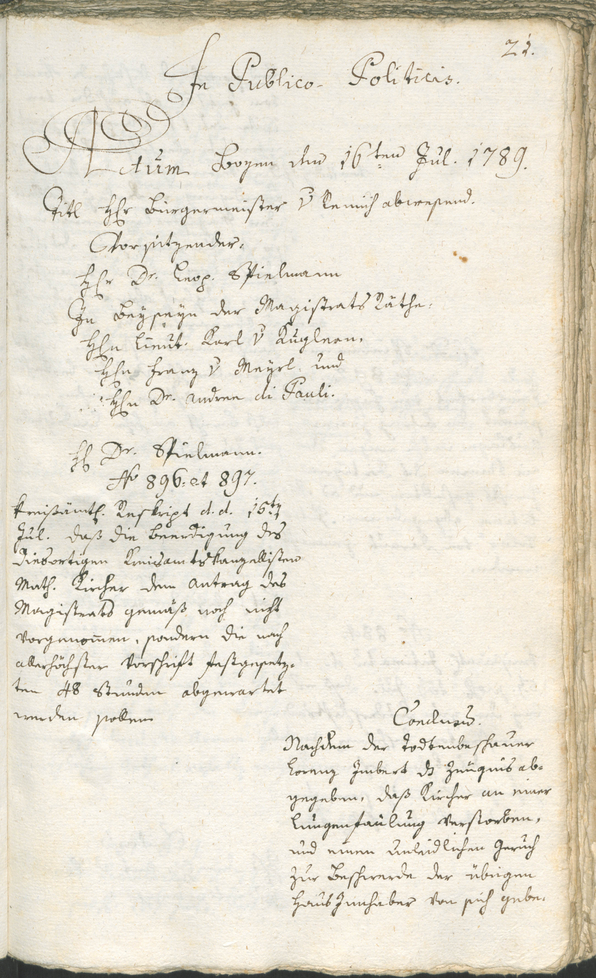 21.
In Publico-Politicis.
Actum Bozen den 16ten Jul. 1789.
Titl Hhr Bürgermeister v Remich abwesend.
Vorsitzender.
Hhr Dr. Leop. Spielmann
In Beyseyn der Magistrats Räthe.
Hhn Lieut. Karl v Kugleon.
Hhn Franz v Meyrl. und
Hhn Dr. Andree di Pauli.
Hh Dr. Spielmann.
No 896. et 897.
Kreisämtl. Reskript d. d. 16ten
Jul. daß die Beerdigung des
diesortigen Kreisamtskanzellisten
Math. Kircher dem Antrag des
Magistrats gemäß noch nicht
vorgenommen, sondern die nach
allerhöchster Vorschrift festgesetz-
ten 48 Stunden abgewartet
werden sollen
Conclusum.
Nachdem der Todtenbeschauer
Lorenz Imbert ds Zeugnis ab-
gegeben, daß Kircher an einer
Lungenfäulung verstorben,
und einen unleidlichen Geruch
zur Beschwerde der übrigen
Hausinnhaber von sich gebe.